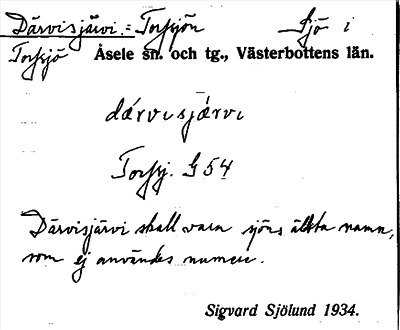 Därvisjärvi = Torvsjön Sjö i
Torvsjö Åsele sn. och tg., Västerbottens län.
dárvisjárvi
Torvsj. G 54
Därvisjärvi skall vara sjöns äldsta namn,
som ej användes numera.
Sigvard Sjölund 1934.